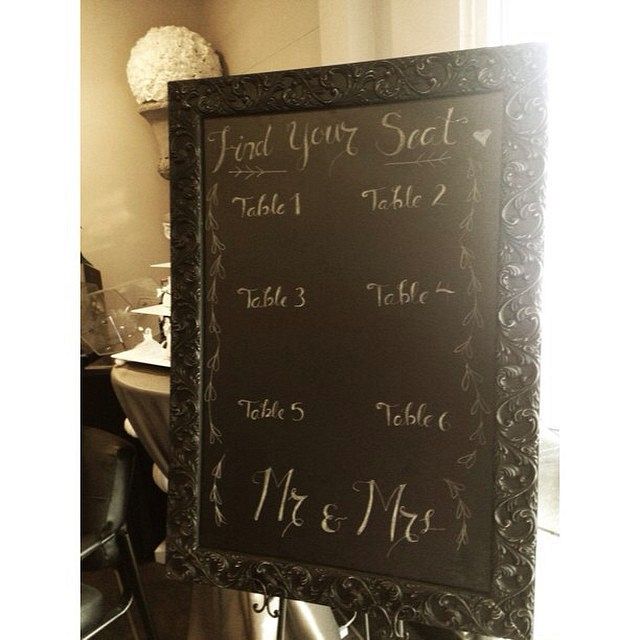 Find Your Seat
Table 1 Table 2
Table 3 Table 4
Table 5 Table 6
Mr & Mrs